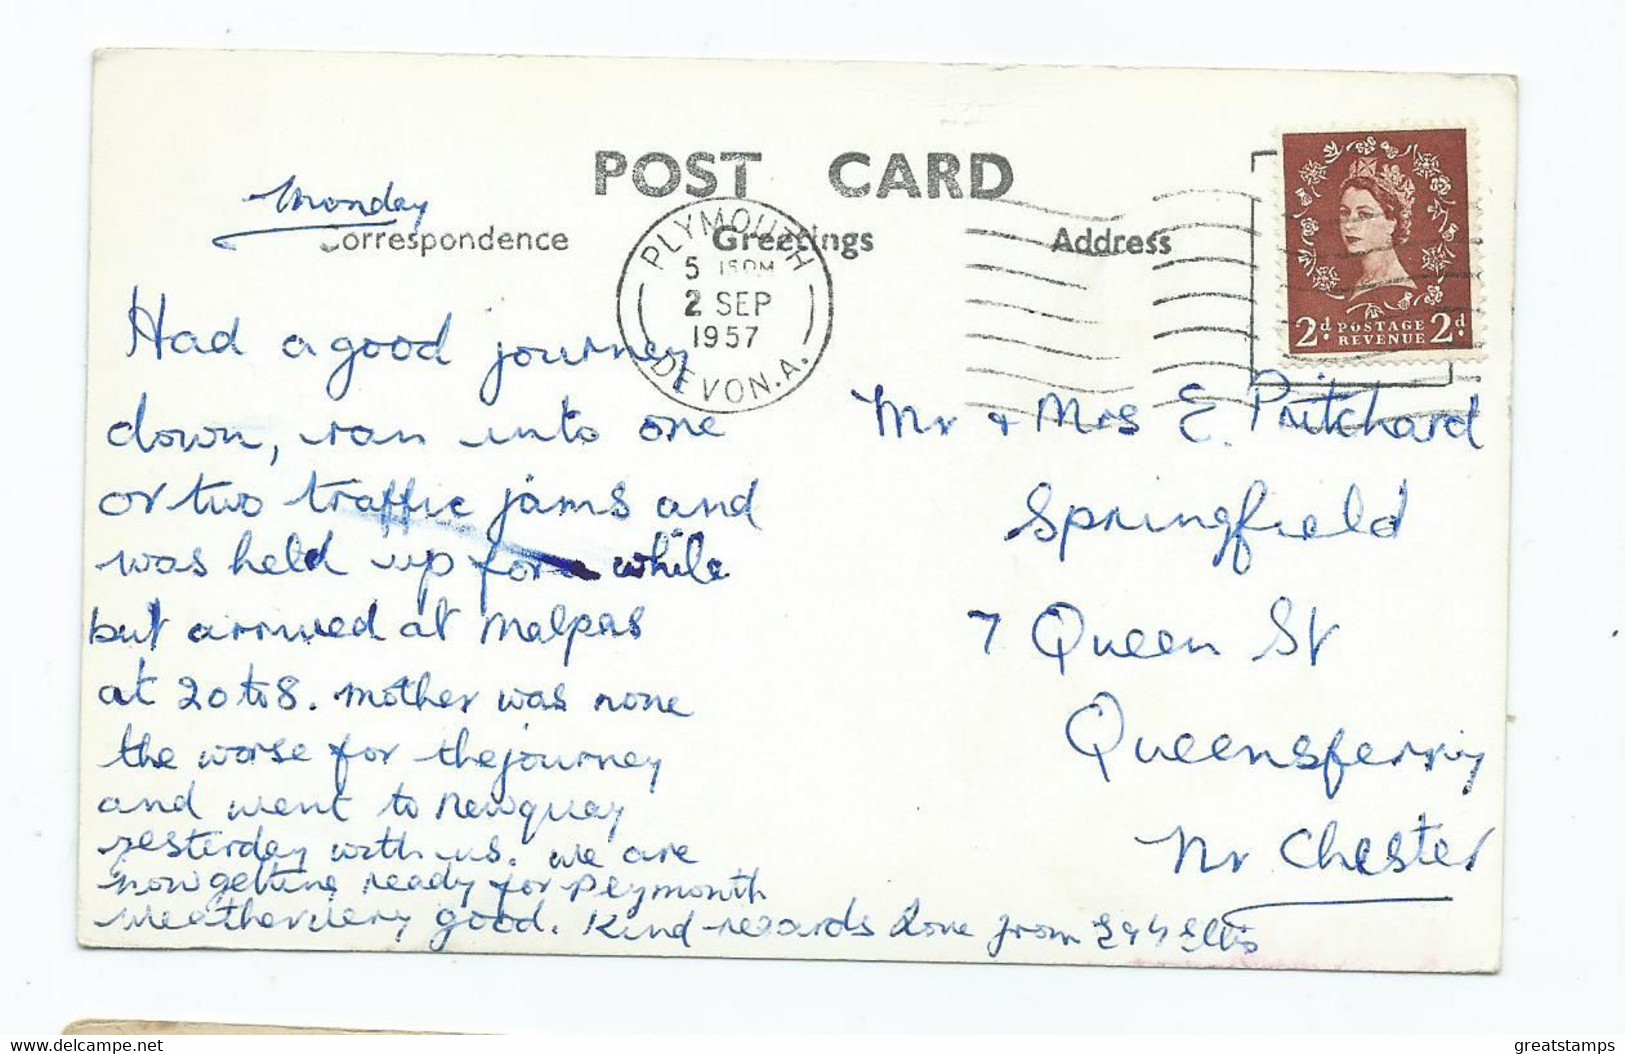 POST CARD
Monday
Correspondence Greetings Address
PLYMOUTH
5 15PM
2 SEP
1957
DEVON. A.
2d POSTAGE 2d
REVENUE
Had a good journey
down, ran into one
or two traffic jams and
was held up for a while
but arrived at Malpas
at 20 to 8. Mother was none
the worse for the journey
and went to Newquay
yesterday with us. We are
now getting ready for Plymouth
weather very good. Kind regards Love from
Mr + Mrs E. Pritchard
Springfield
7 Queen St
Queensferry
Nr Chester
delcampe.net
greatstamps